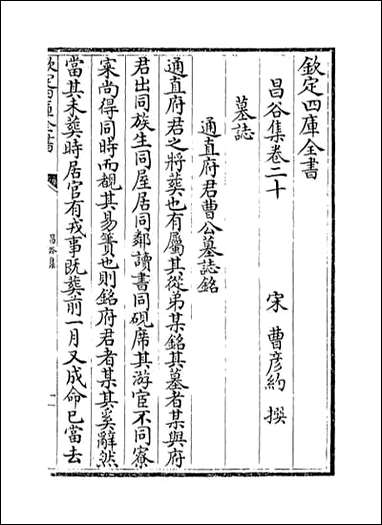 欽定四庫全書
昌谷集卷二十
宋 曹彦約 撰
墓誌
通直府君曹公墓誌銘
通直府君之將葬也有屬其從弟某銘其墓者某與府
君出同族生同屋居同鄰讀書同硯席其游宦不同寮
寀尚得同時而覩其易簀也則銘府君者某其奚辭然
當其未葬時居官有戎事既葬前一月又成命已當去
昌谷集